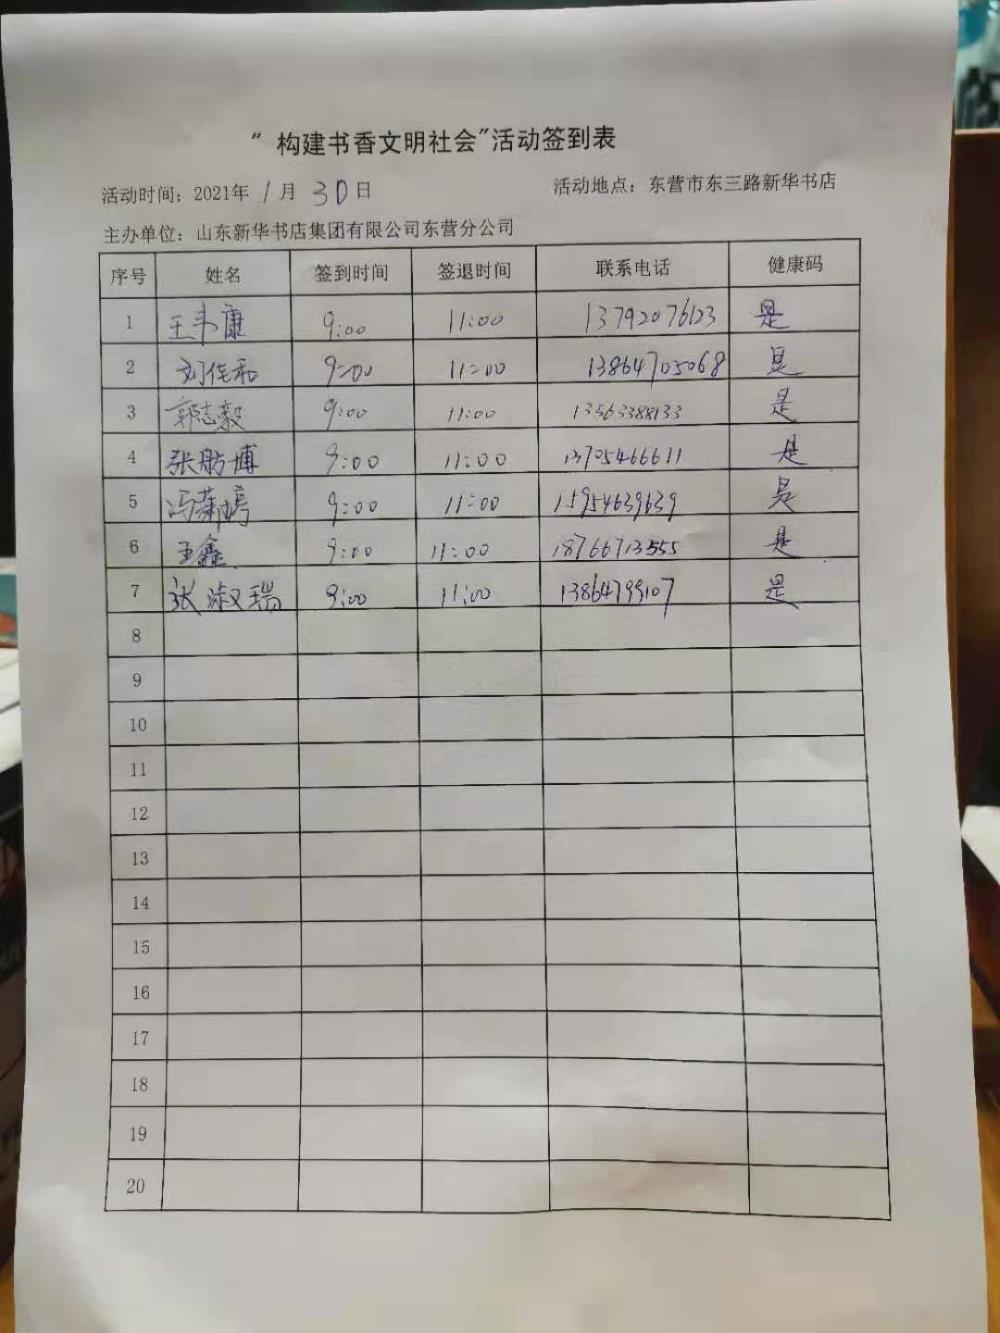 “ 构建书香文明社会”活动签到表
活动时间：2021年 1 月 30 日 活动地点：东营市东三路新华书店
主办单位：山东新华书店集团有限公司东营分公司
序号 姓名 签到时间 签退时间 联系电话 健康码
1 王韦康 9:00 11:00 13792076123 是
2 刘佳和 9:00 11:00 13864705068 是
3 郭志毅 9:00 11:00 13563388133 是
4 张舫博 9:00 11:00 13705466611 是
5 冯 9:00 11:00 15954639639 是
6 王鑫 9:00 11:00 18766713555 是
7 张淑瑞 9:00 11:00 13864799107 是
8
9
10
11
12
13
14
15
16
17
18
19
20